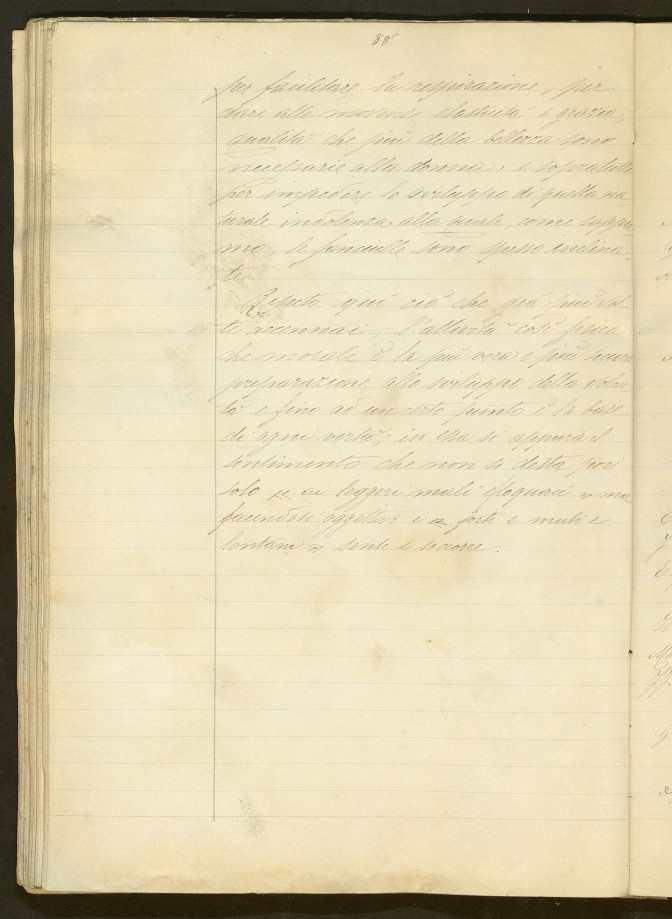 88
per facilitare la respirazione, per
dare alle movenze elasticità e grazia,
qualità che più della bellezza sono
necessarie alla donna, e sopratutto
per impedire lo sviluppo di quella na
turale indolenza alla quale, come sappia
mo, le fanciulle sono spesso inclina
te.
Ripeto qui ciò che già più vol
te accennai; l'attività così fisica
che morale è la più vera e più sicura
preparazione allo sviluppo della volon
tà e fino ad un certo punto è la base
di ogni virtù; in essa si appura il
sentimento che non si desta poi
solo ai leggeri mali eloquaci ma
facendosi oggettivo i forti e muti e
lontani sente e socorre.